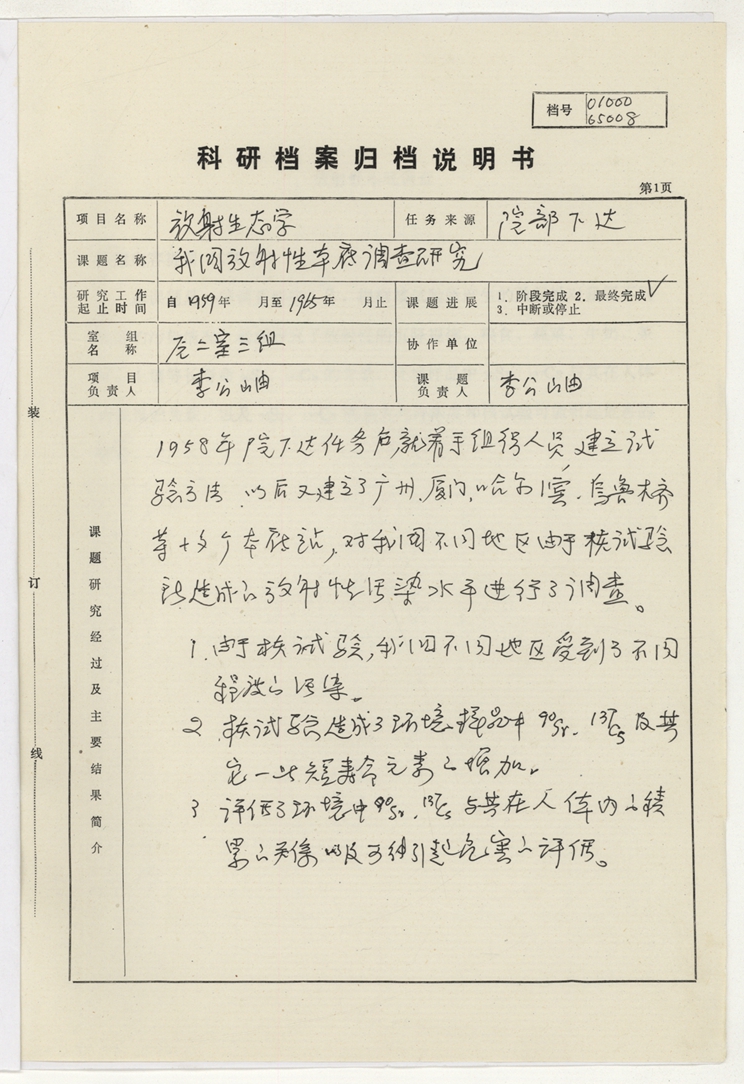 档号 01000
65008
科研档案归档说明书
第1页
项目名称 放射生态学 任务来源 院部下达
课题名称 我国放射性本底调查研究
研究工作起止时间 自1959年 月至1965年 月止 课题进展 1. 阶段完成 2. 最终完成✓
3. 中断或停止
室组名称 二室三组 协作单位
项目负责人 李公岫 课题负责人 李公岫
课题研究经过及主要结果简介
1958年院下达任务后,就着手组织人员建立试
验方法.以后又建立了广州、厦门、哈尔滨、乌鲁木齐
等十多个本底站,对我国不同地区由于核试验
所造成的放射性污染水平进行了调查。
1.由于核试验,我国不同地区受到了不同
程度的污染。
2.核试验造成了环境样品中⁹⁰Sr、¹³⁷Cs及其
它一些短寿命元素的增加。
3 评价了环境中⁹⁰Sr、¹³⁷Cs与其在人体内的积
累的关系以及可能引起危害的评价。
装
订
线